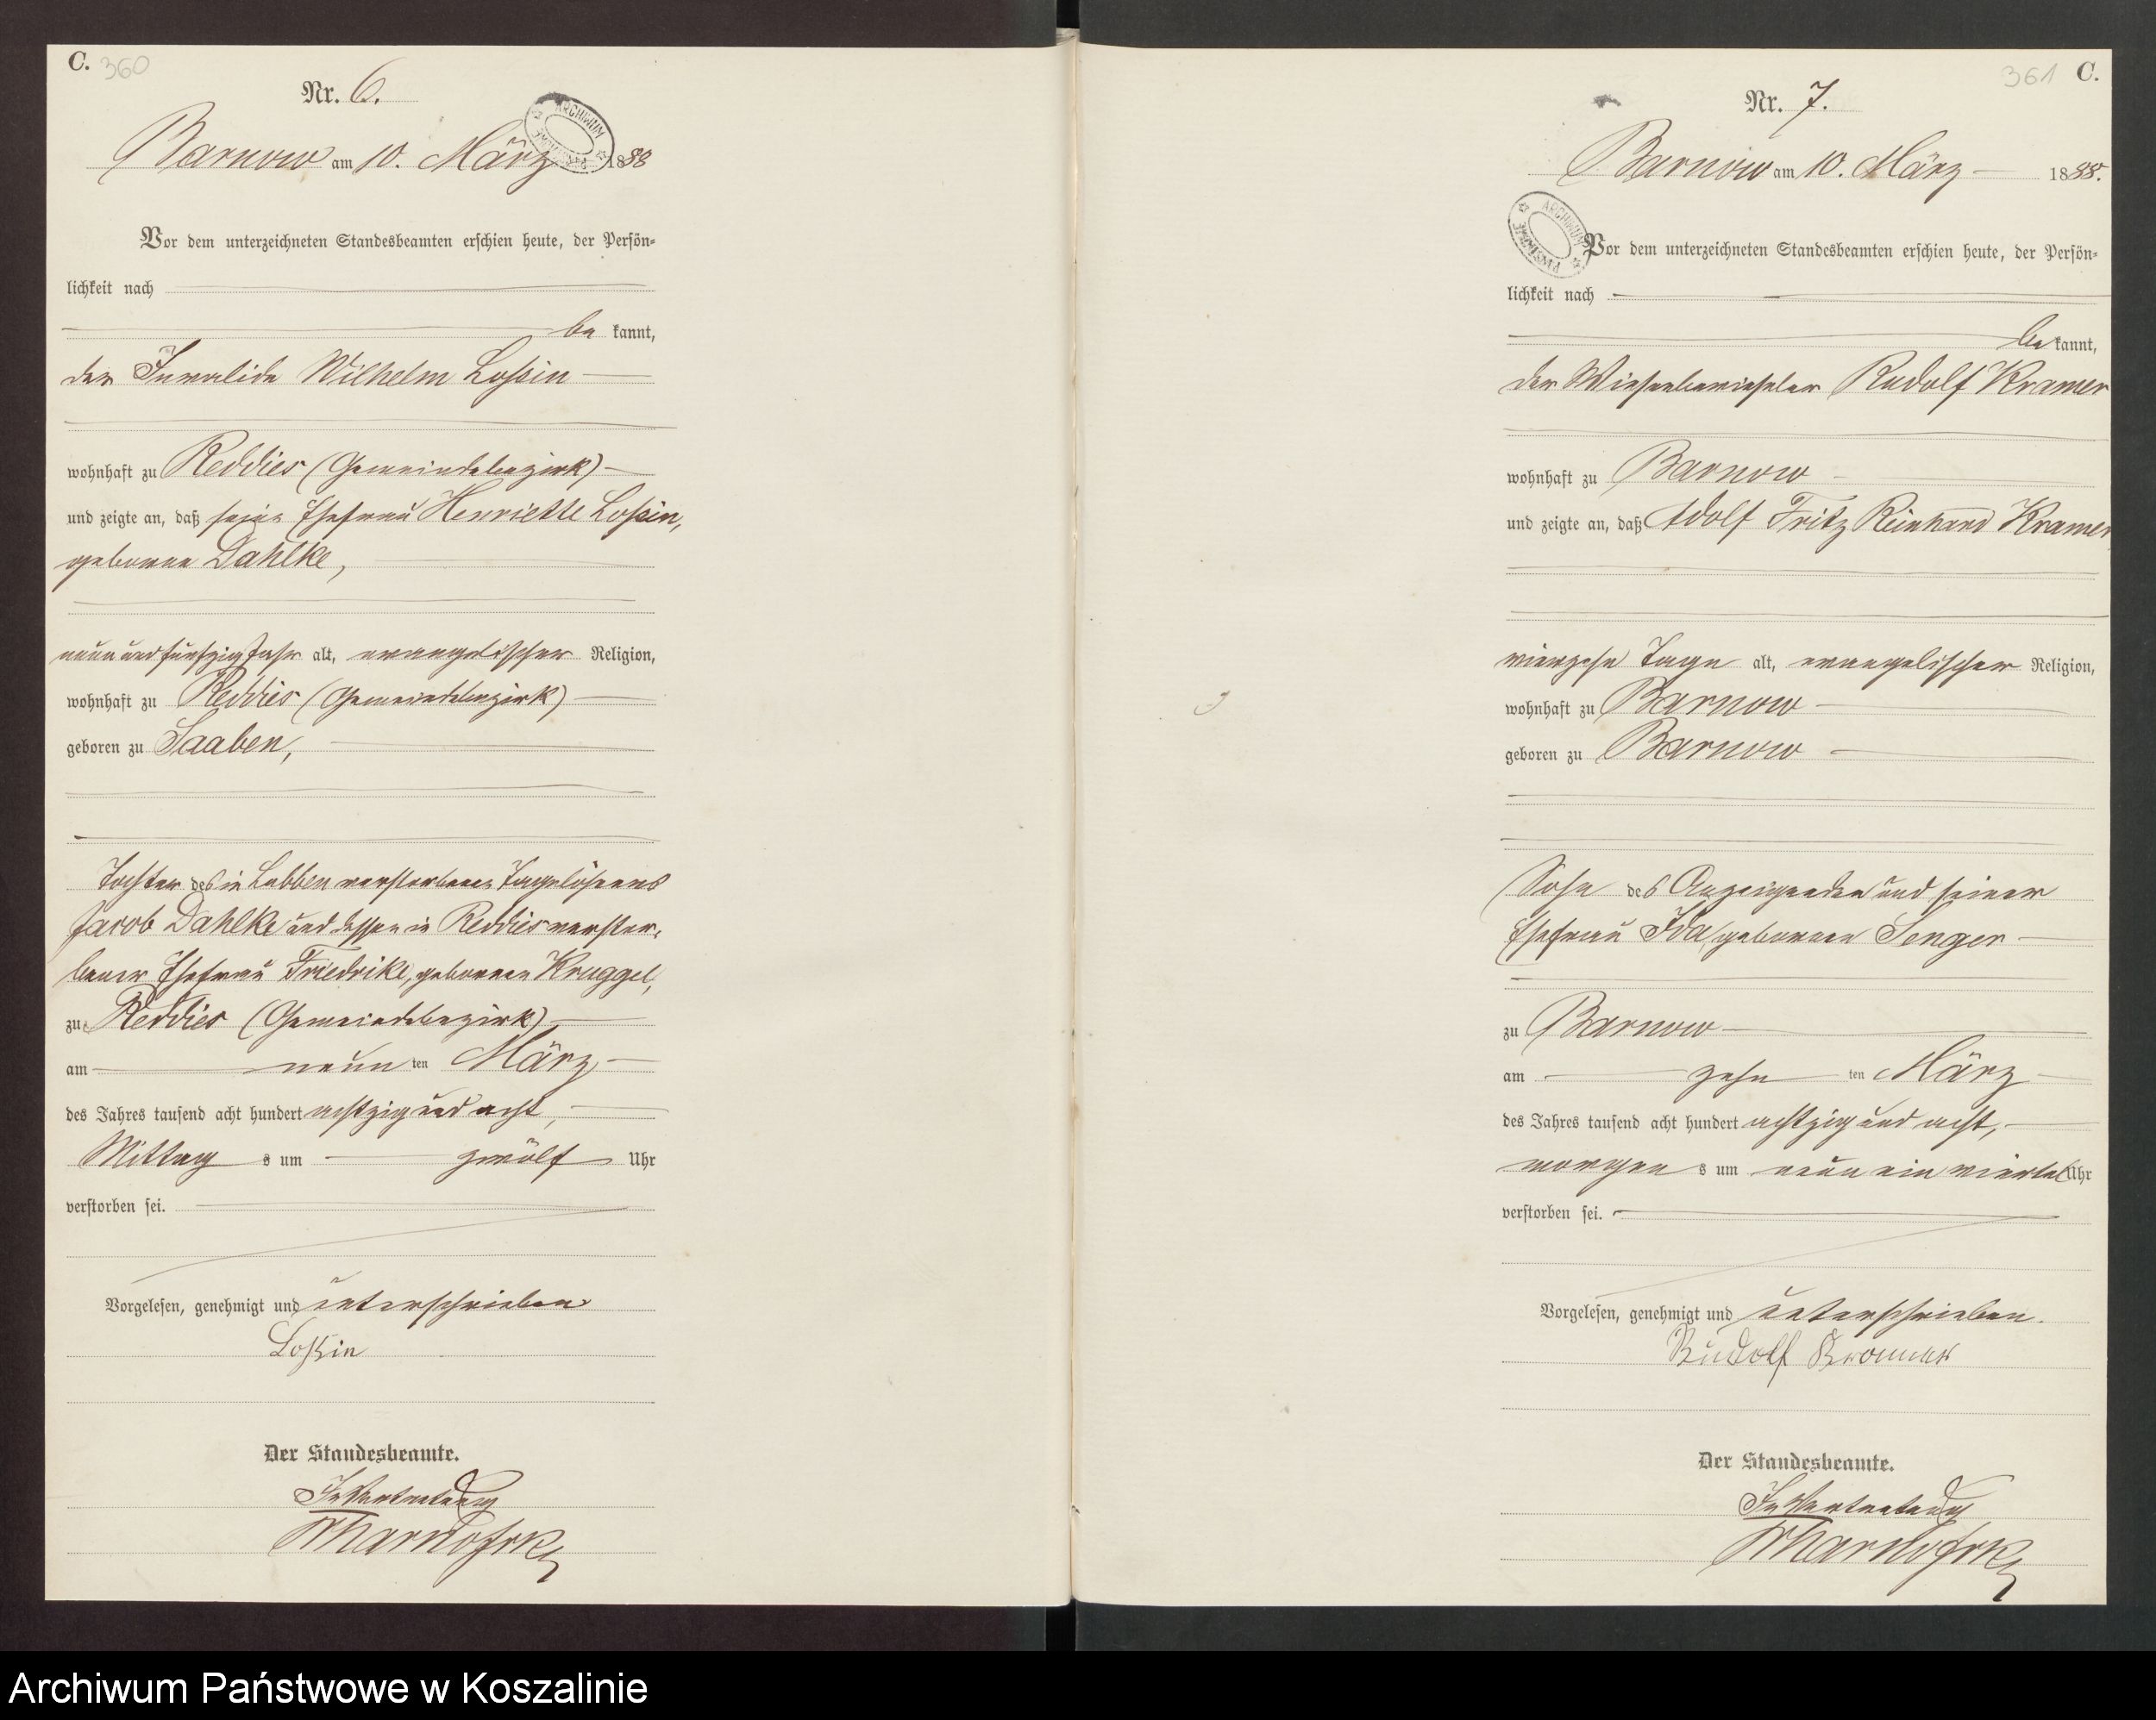 C. 360
Nr. 6.
ARCHIWUM
Barnow am 10. März 1888
Vor dem unterzeichneten Standesbeamten erschien heute, der Persön-
lichkeit nach
be kannt,
der Invalide Wilhelm Loßin
wohnhaft zu Reddies (Gemeindebezirk)
und zeigte an, daß seine Ehefrau Henriette Loßin,
geborene Dahlke,
neun und fünfzig Jahr alt, evangelischer Religion,
wohnhaft zu Reddies (Gemeindebezirk)
geboren zu Saaben,
Tochter des in Labben verstorbenen Tagelöhners
Jacob Dahlke und dessen in Reddies verstor-
bener Ehefrau Friedrike, geborenen Kruggel,
zu Reddies (Gemeindebezirk)
am neun ten März
des Jahres tausend acht hundert achtzig und acht,
Mittag s um zwölf Uhr
verstorben sei.
Vorgelesen, genehmigt und unterschrieben
Loßin
Der Standesbeamte.
In Vertretung
361 C.
Nr. 7.
Barnow am 10. März 1888.
ARCHIWUM
Vor dem unterzeichneten Standesbeamten erschien heute, der Persön-
lichkeit nach
be kannt,
der Wiesenberieseler Rudolf Kramer
wohnhaft zu Barnow
und zeigte an, daß Adolf Fritz Reinhard Kramer
vierzehn Tage alt, evangelischer Religion,
wohnhaft zu Barnow
geboren zu Barnow
Sohn des Anzeigenden und seiner
Ehefrau Ida, geborenen Senger
zu Barnow
am zehn ten März
des Jahres tausend acht hundert achtzig und acht,
morgen s um neun ein viertel Uhr
verstorben sei.
Vorgelesen, genehmigt und unterschrieben.
Rudolf Kramer
Der Standesbeamte.
In Vertretung
Archiwum Państwowe w Koszalinie